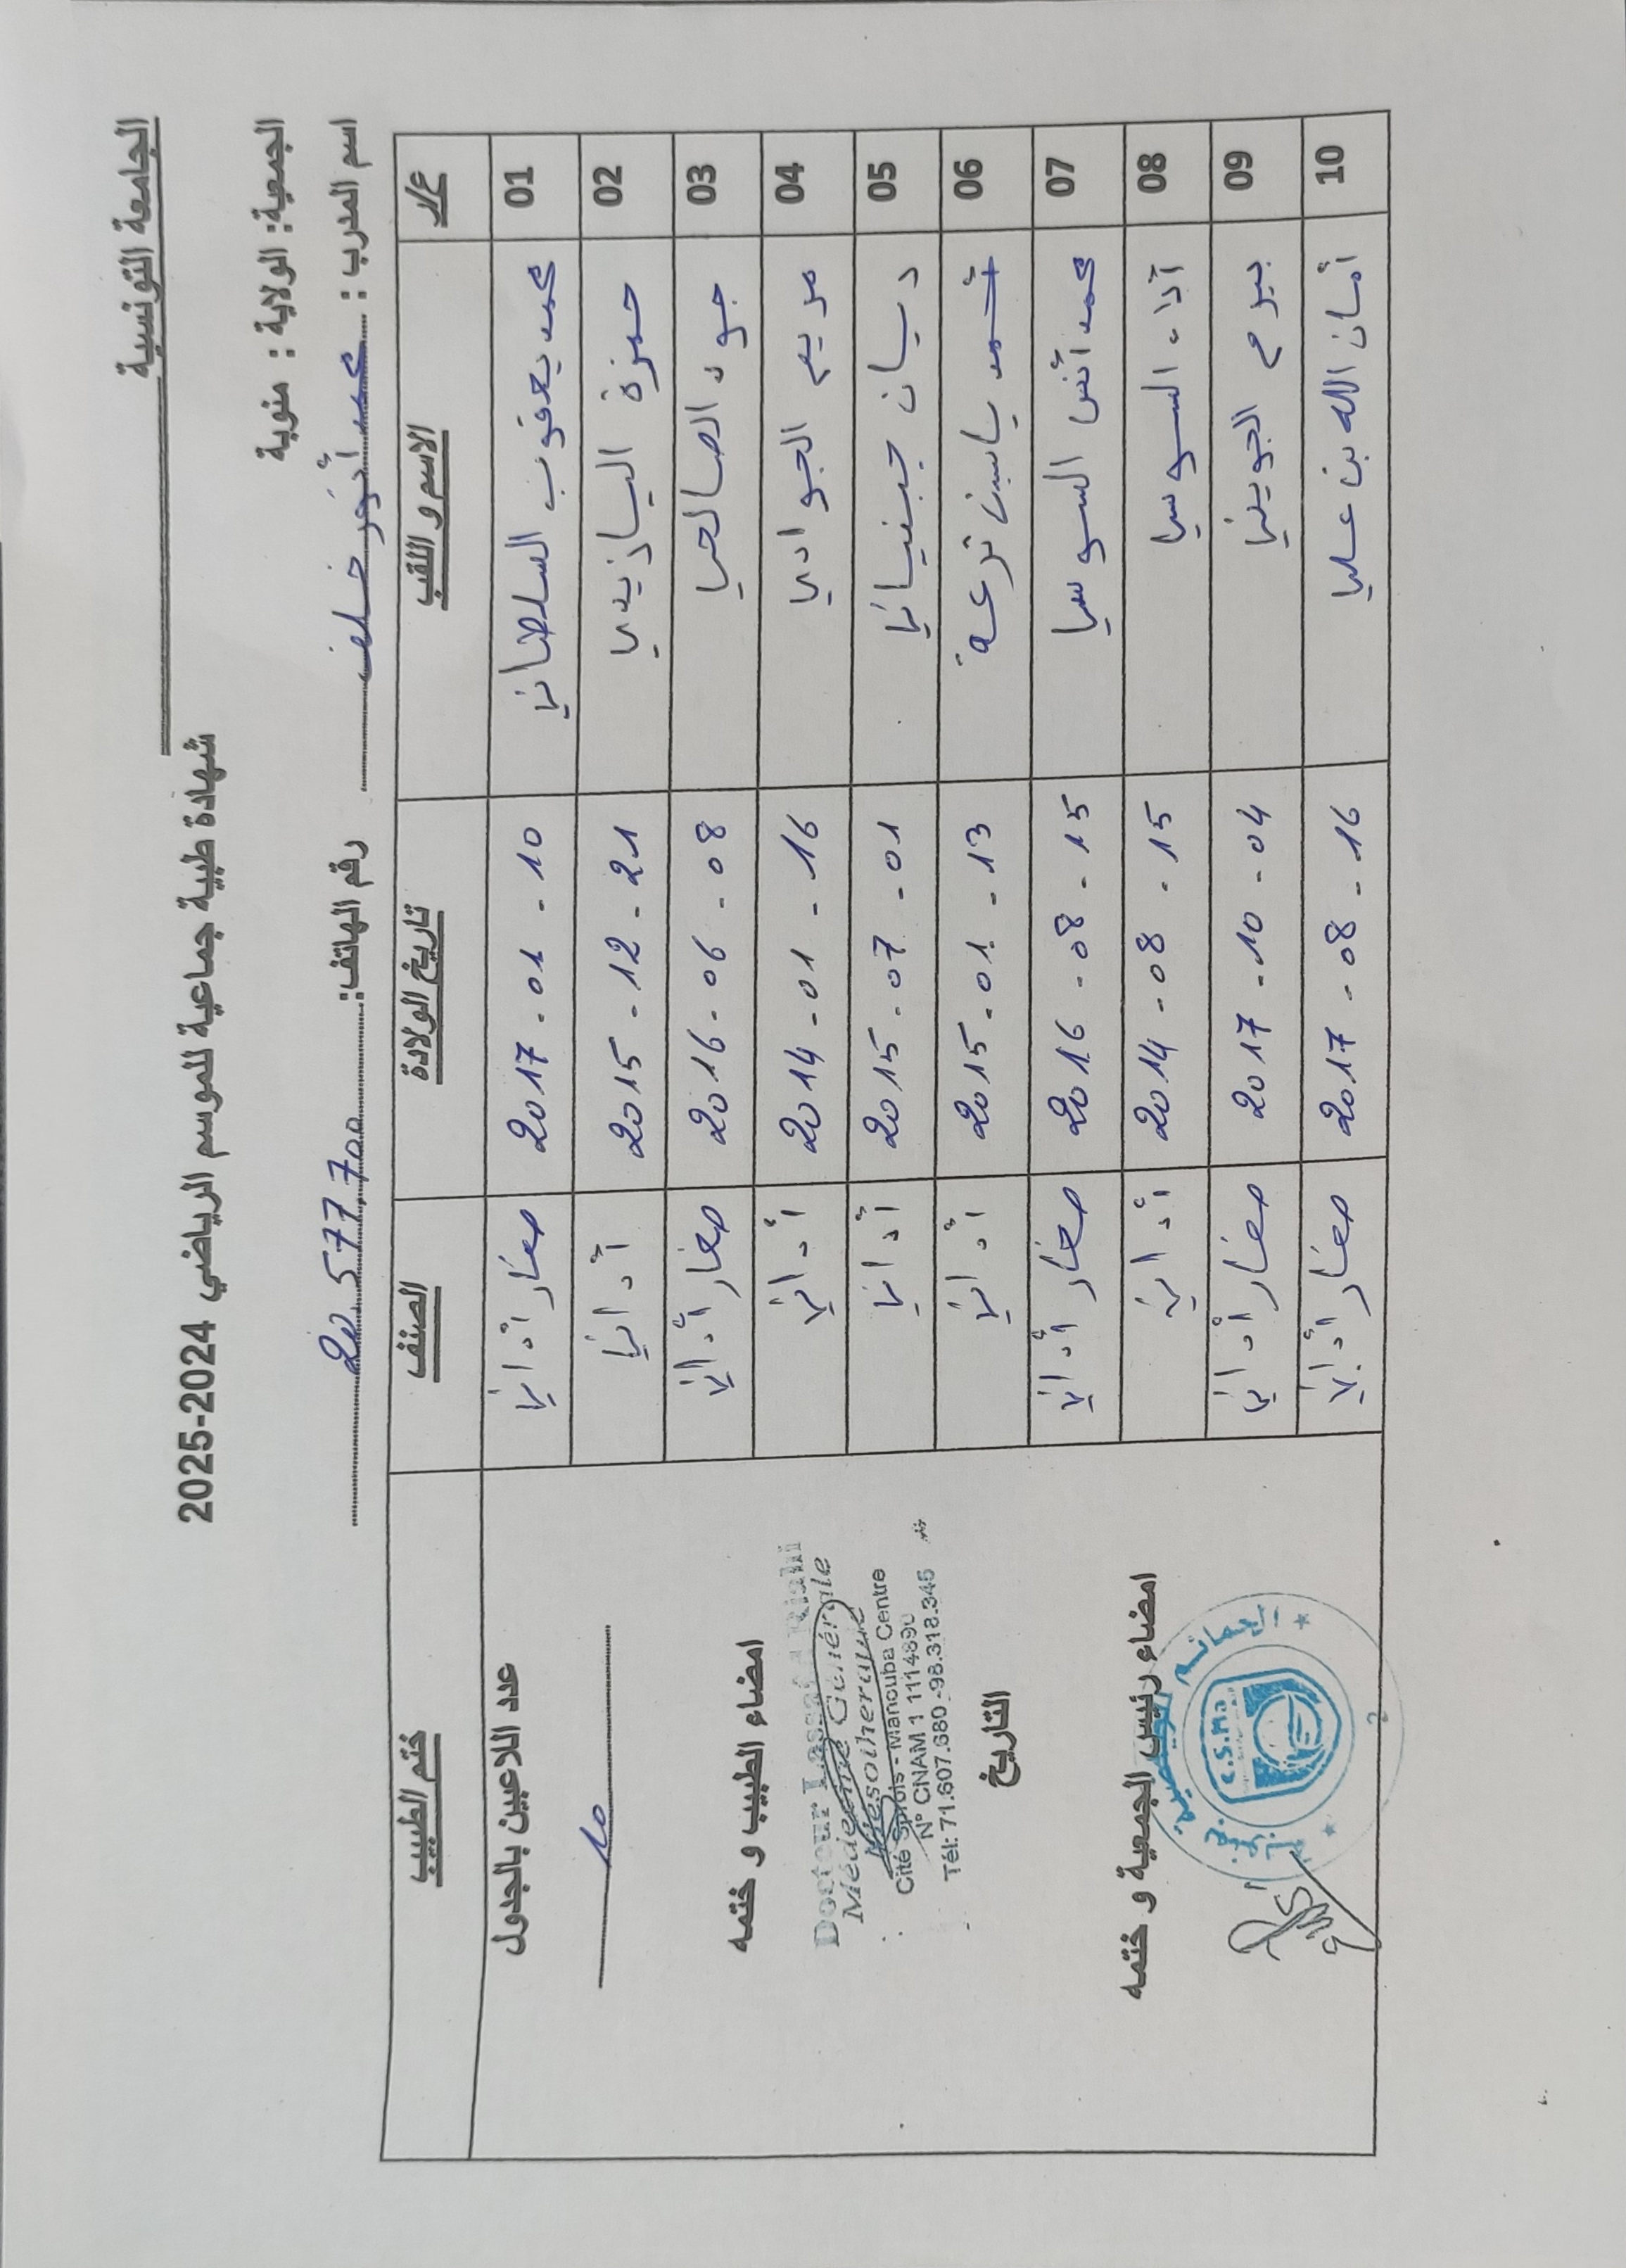 الجامعة التونسية
شهادة طبية جماعية للموسم الرياضي 2024-2025
الجمعية: الولاية : منوبة
اسم المدرب : محمد أنور خلف رقم الهاتف: 20.577.700
ع/ر الاسم و اللقب تاريخ الولادة الصنف ختم الطبيب
01 محمد يعقوب السلطاني 2017 - 01 - 10 صغار أداني
02 حمزة اليازيدي 2015 - 12 - 21 أداني
03 جود الصالحي 2016 - 06 - 08 صغار أداني
04 مريم الجوادي 2014 - 01 - 16 أداني
05 ديسان جبنياني 2015 - 07 - 01 أداني
06 محمد ياسين ترعة 2015 - 01 - 13 أداني
07 محمد أنس السوسي 2016 - 08 - 15 صغار أداني
08 آلاء السوسي 2014 - 08 - 15 أداني
09 بيرم الجويني 2017 - 10 - 04 صغار أداني
10 أمان الله بن علي 2017 - 08 - 16 صغار أداني
عدد اللاعبين بالجدول
10
امضاء الطبيب و ختمه
Docteur Lassaad Riahi
Médecine Générale
Mésothérapie
Cité Sprols - Manouba Centre
N° CNAM 1 1114890
Tél: 71.607.680 - 98.318.345
التاريخ
امضاء رئيس الجمعية و ختمه
C.S.M.